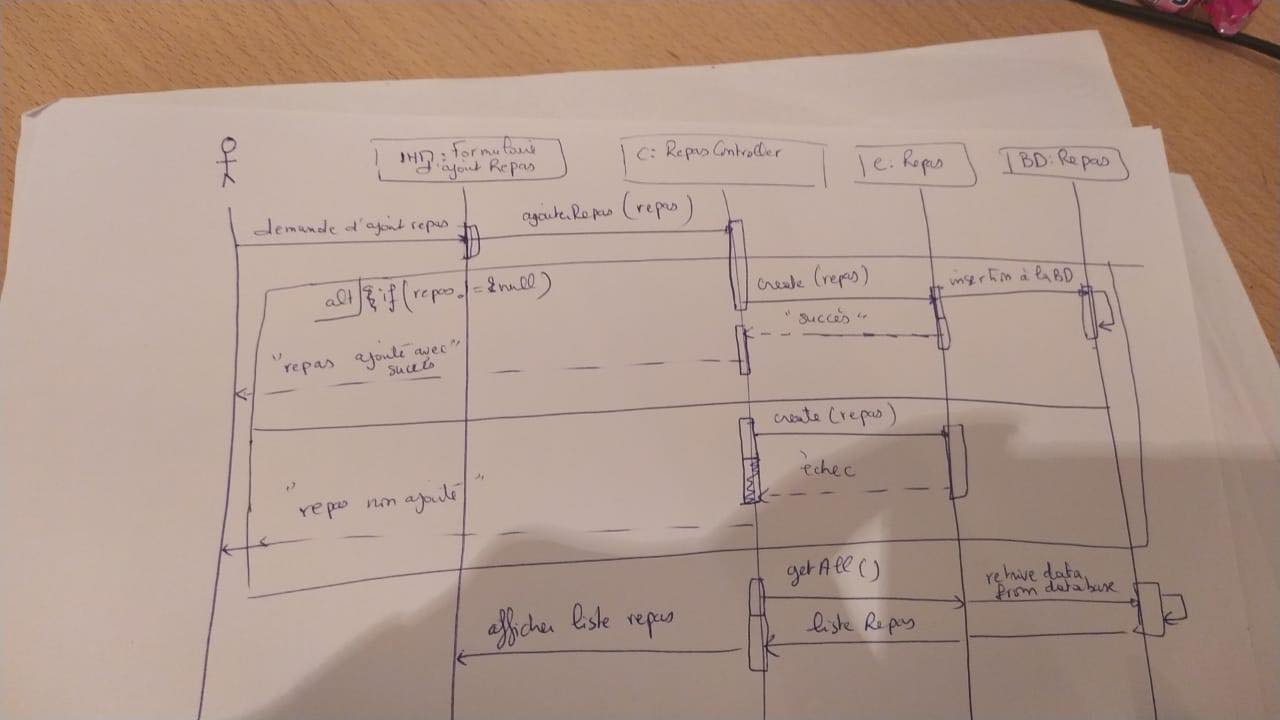 IHM: Formulaire
d'ajout Repas
C: RepasController
E: Repas
BD: Repas
demande d'ajout repas
ajouterRepas (repas)
alt
if (repas != null)
create (repas)
insertion à la BD
"succès"
"repas ajouté avec"
succès
create (repas)
échec
"repas non ajouté"
getAll ()
retrive data
from database
afficher liste repas
liste Repas